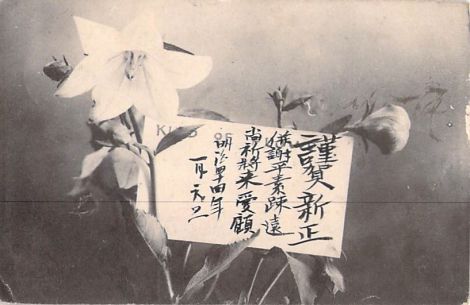 謹賀新正
併謝平素疎遠
尚祈將来愛顧
明治四十四年
一月元旦